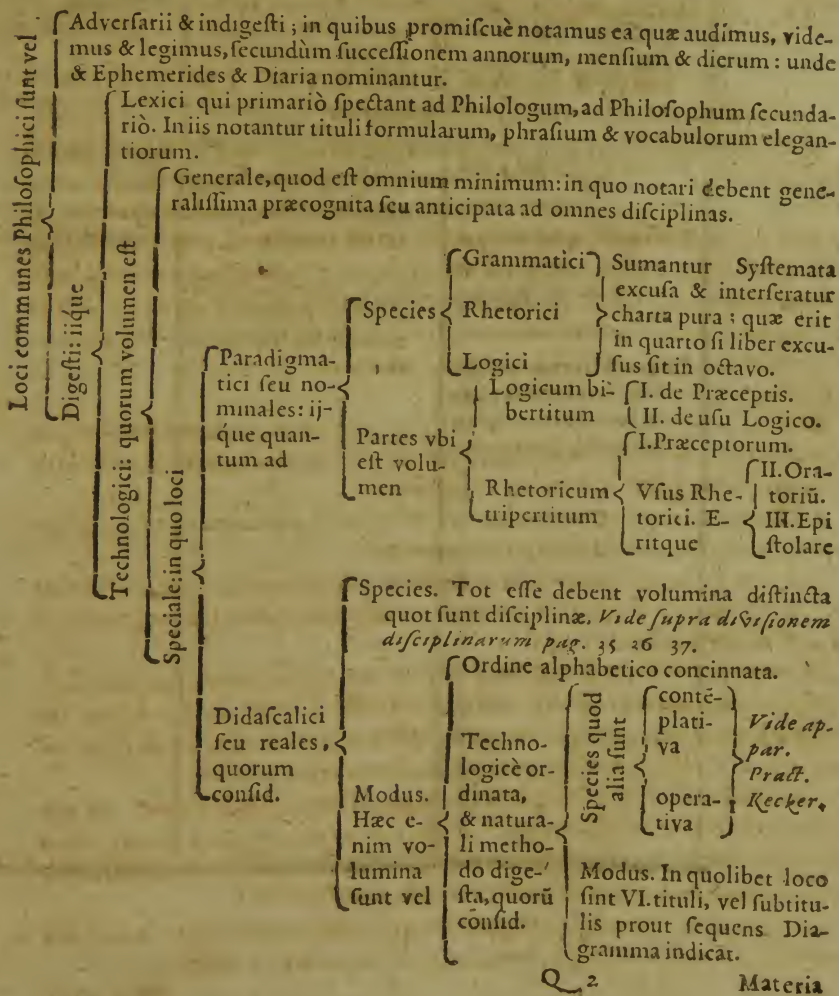 Loci communes Philoſophici ſunt vel
Adverſarii & indigeſti ; in quibus promiſcuè notamus ea quæ audimus, vide-
mus & legimus, ſecundùm ſucceſſionem annorum, menſium & dierum : unde
& Ephemerides & Diaria nominantur.
Digeſti: iíque
Lexici qui primariò ſpectant ad Philologum, ad Philoſophum ſecunda-
riò. In iis notantur tituli formularum, phraſium & vocabulorum elegan-
tiorum.
Technologici: quorum volumen eſt
Generale, quod eſt omnium minimum: in quo notari debent gene-
raliſſima præcognita ſeu anticipata ad omnes diſciplinas.
Speciale: in quo loci
Paradigma-
tici ſeu no-
minales: ij-
q́ue quan-
tum ad
Species
Grammatici
Rhetorici
Logici
Sumantur Syſtemata
excuſa & interſeratur
charta pura ; quæ erit
in quarto ſi liber excu-
ſus ſit in octavo.
Partes vbi
eſt volu-
men
Logicum bi-
bertitum
I. de Præceptis.
II. de uſu Logico.
Rhetoricum
tripertitum
I. Præceptorum.
Vſus Rhe-
torici. E-
ritque
II. Ora-
toriū.
III. Epi
ſtolare
Didaſcalici
ſeu reales,
quorum
conſid.
Species. Tot eſſe debent volumina diſtincta
quot ſunt diſciplinæ. Vide ſupra diviſionem
diſciplinarum pag. 35 36 37.
Modus.
Hæc e-
nim vo-
lumina
ſunt vel
Ordine alphabetico concinnata.
Techno-
logicè or-
dinata,
& natura-
li metho-
do dige-
ſta, quorū
conſid.
Species quod
alia ſunt
contē-
plati-
va
opera-
tiva
Vide ap-
par.
Pract.
Kecker.
Modus. In quolibet loco
ſint VI. tituli, vel ſubtitu-
lis prout ſequens Dia-
gramma indicat.
Q 2 Materia